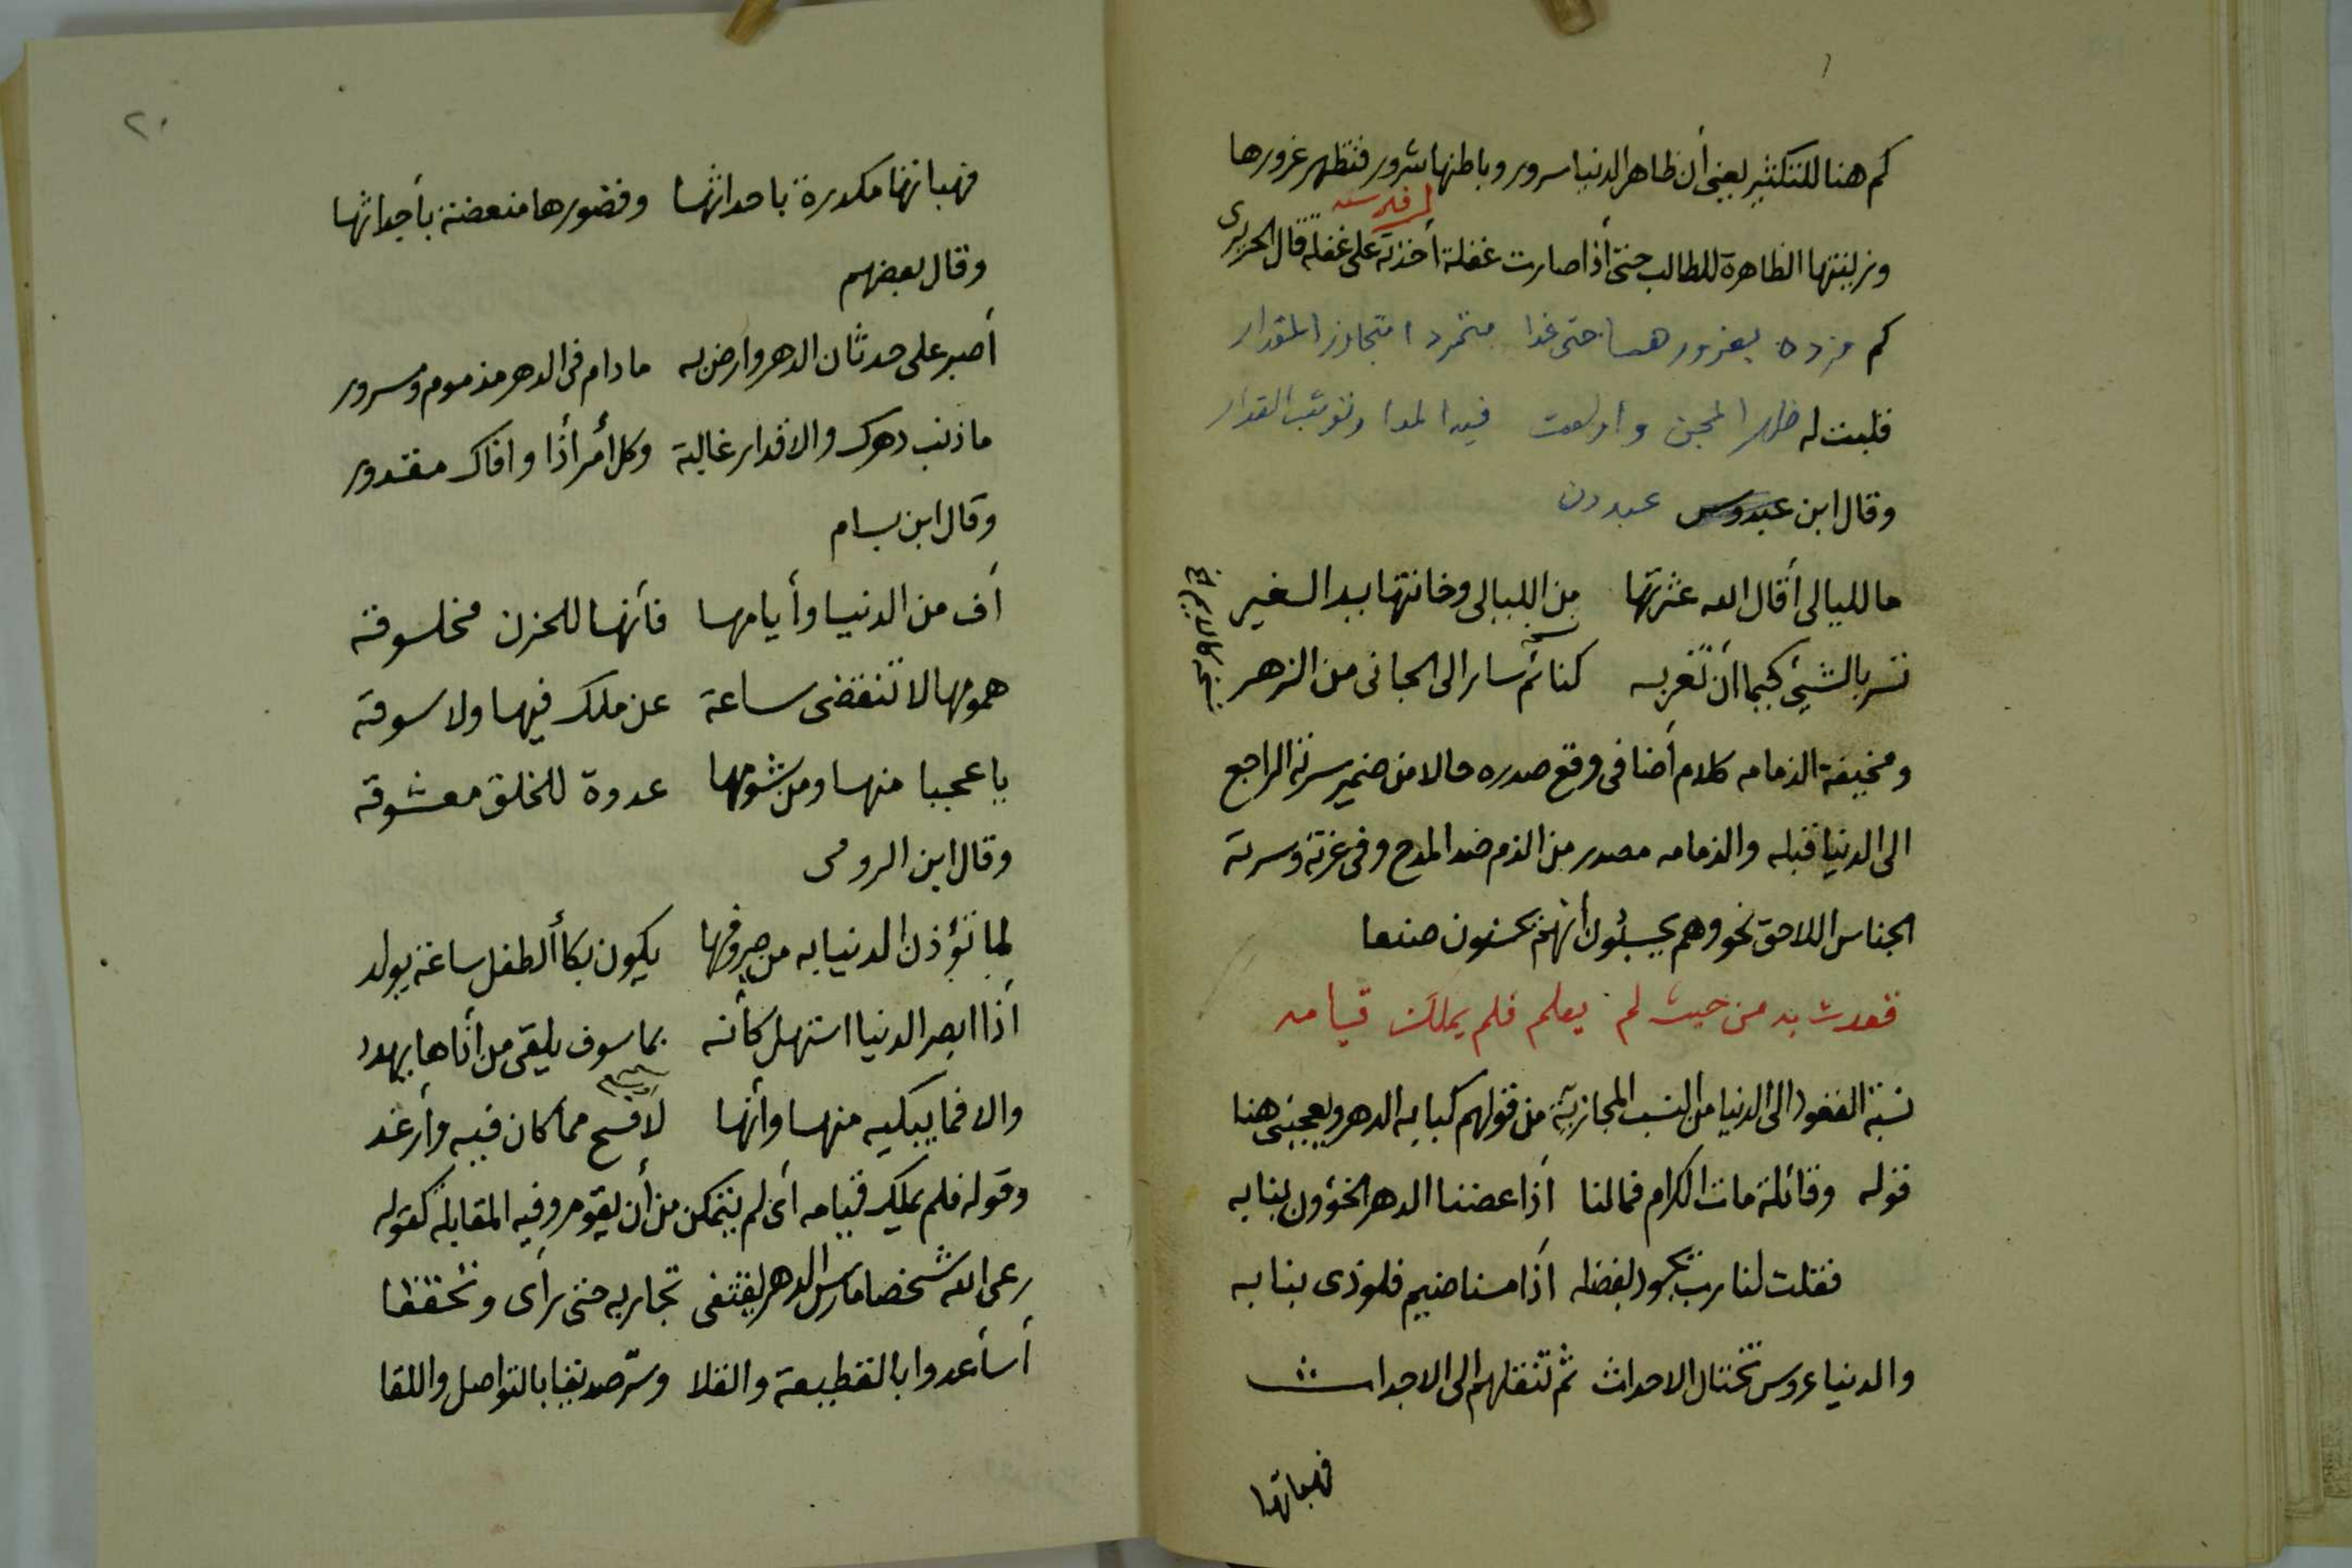 كم هنا للتكثير يعني أن ظاهر الدنيا سرور وباطنها شرور فتظهر غرورها
وزينتها الظاهرة للطالب حتى أذا صارت غفلة أخذته على غفلة قال الحريرى
كم مزده بغرورها حتى غدا متمردا متجاوز المقدار
قلبت له ظهر المجن وأولعت فيه المدا ونوت القدار
وقال ابن عبدوس عبدون
ما لليالى أقال الله عثرتها من الليالى وخانتها يد الغير
تسر بالشيئ كيما أن تغر به كنائم سار الى الجانى من الزهر
ومخيفة الذمامه كلام أضافى وقع صدره حالا من ضمير سرته الراجع
الى الدنيا قبله والذمامه مصدر من الذم ضد المدح وفى غرته وسرته
الجناس اللاحق نحو وهم يحسبون أنهم يحسنون صنعا
قعدت به من حيث لم يعلم فلم يملك قيامه
نسبة القعود الى الدنيا من النسب المجازية من قولهم كبا به الدهر ويعجبنى هنا
قوله وقائلة مات الكرام فمالنا أذا عضنا الدهر الخؤون بنابه
فقلت لنا رب يجود بفضله أذا مسنا ضيم فلوذى ببابه
والدنيا عروس تختال الاحداث ثم تنقلهم الى الاجداث
فهباتها
٢٠
فهباتها مكدرة باحداثها وقصورها منغصة بأجداثها
وقال بعضهم
أصبر على حدثان الدهر وارض به مادام فى الدهر مذموم ومسرور
ما ذنب دهرك والاقدار غالبة وكل أمر أذا وافاك مقدور
وقال ابن بسام
أف من الدنيا وأيامها فأنها للحزن مخلوقة
همومها لا تنقضى ساعة عن ملك فيها ولا سوقة
يا عجبا منها ومن شومها عدوة للخلق معشوقة
وقال ابن الرومى
لما تؤذن الدنيا به من صروفها يكون بكا ألطفل ساعة يولد
أذا ابصر الدنيا استهل كأنه بما سوف يلقى من أذاها يهدد
والا فما يبكيه منها وأنها لأفسح مما كان فيه وأرغد
وقوله فلم يملك قيامه أى لم يتمكن من أن يقوم وفيه المقابلة كقوله
رعى الله شخصا مارس الدهر يقتفى تجاربه حتى رأى وتحققا
أسأ عدوا بالقطيعة والقلا وسر صديقا بالتواصل واللقا